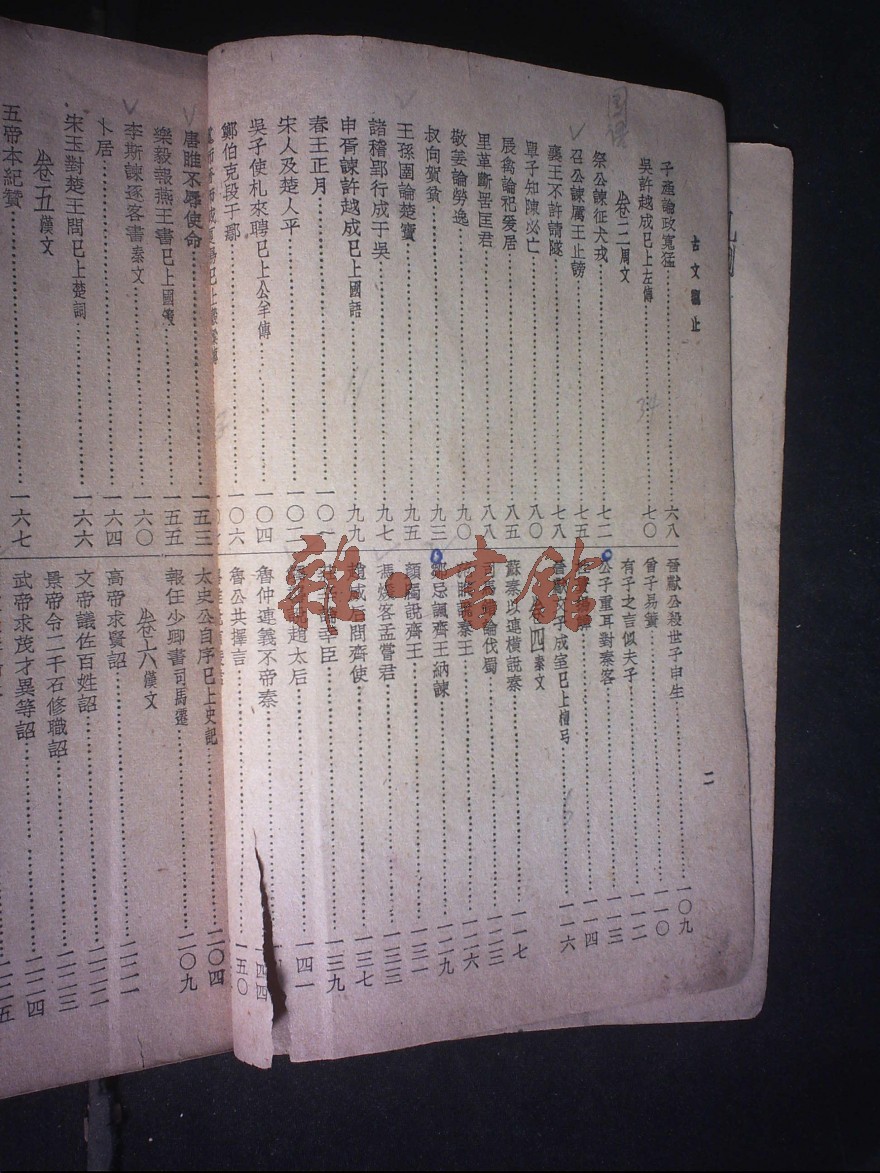 古文觀止
二
子產論政寬猛 六八
吳許越成已上左傳 七〇
卷三周文
祭公諫征犬戎 七二
召公諫厲王止謗 七五
襄王不許請隧 七八
單子知陳必亡 八〇
展禽論祀爰居 八五
里革斷罟匡君 八八
敬姜論勞逸 九〇
叔向賀貧 九三
王孫圉論楚寶 九五
諸稽郢行成于吳 九七
申胥諫許越成已上國語 九九
春王正月 一〇一
宋人及楚人平 一〇二
吳子使札來聘已上公羊傳 一〇四
鄭伯克段于鄢 一〇六
晉獻公殺世子申生 一〇九
曾子易簀 一一〇
有子之言似夫子 一一二
公子重耳對秦客 一一三
一一四
成室已上檀弓 一一六
卷四秦文
蘇秦以連橫說秦 一一七
論伐蜀 一二三
說秦王 一二六
鄒忌諷齊王納諫 一二九
顏斶說齊王 一三一
馮煖客孟嘗君 一三三
趙威后問齊使 一三七
幸臣 一三九
趙太后 一四一
魯仲連義不帝秦 一四四
魯公共擇言 一五〇
唐雎不辱使命 一五三
樂毅報燕王書已上國策 一五五
李斯諫逐客書秦文 一六〇
卜居 一六四
宋玉對楚王問已上楚詞 一六六
卷五漢文
五帝本紀贊 一六七
太史公自序已上史記 二〇四
報任少卿書司馬遷 二〇九
卷六漢文
高帝求賢詔 二二二
文帝議佐百姓詔 二二三
景帝令二千石修職詔 二二四
武帝求茂才異等詔 二二五
國語
雜·書館